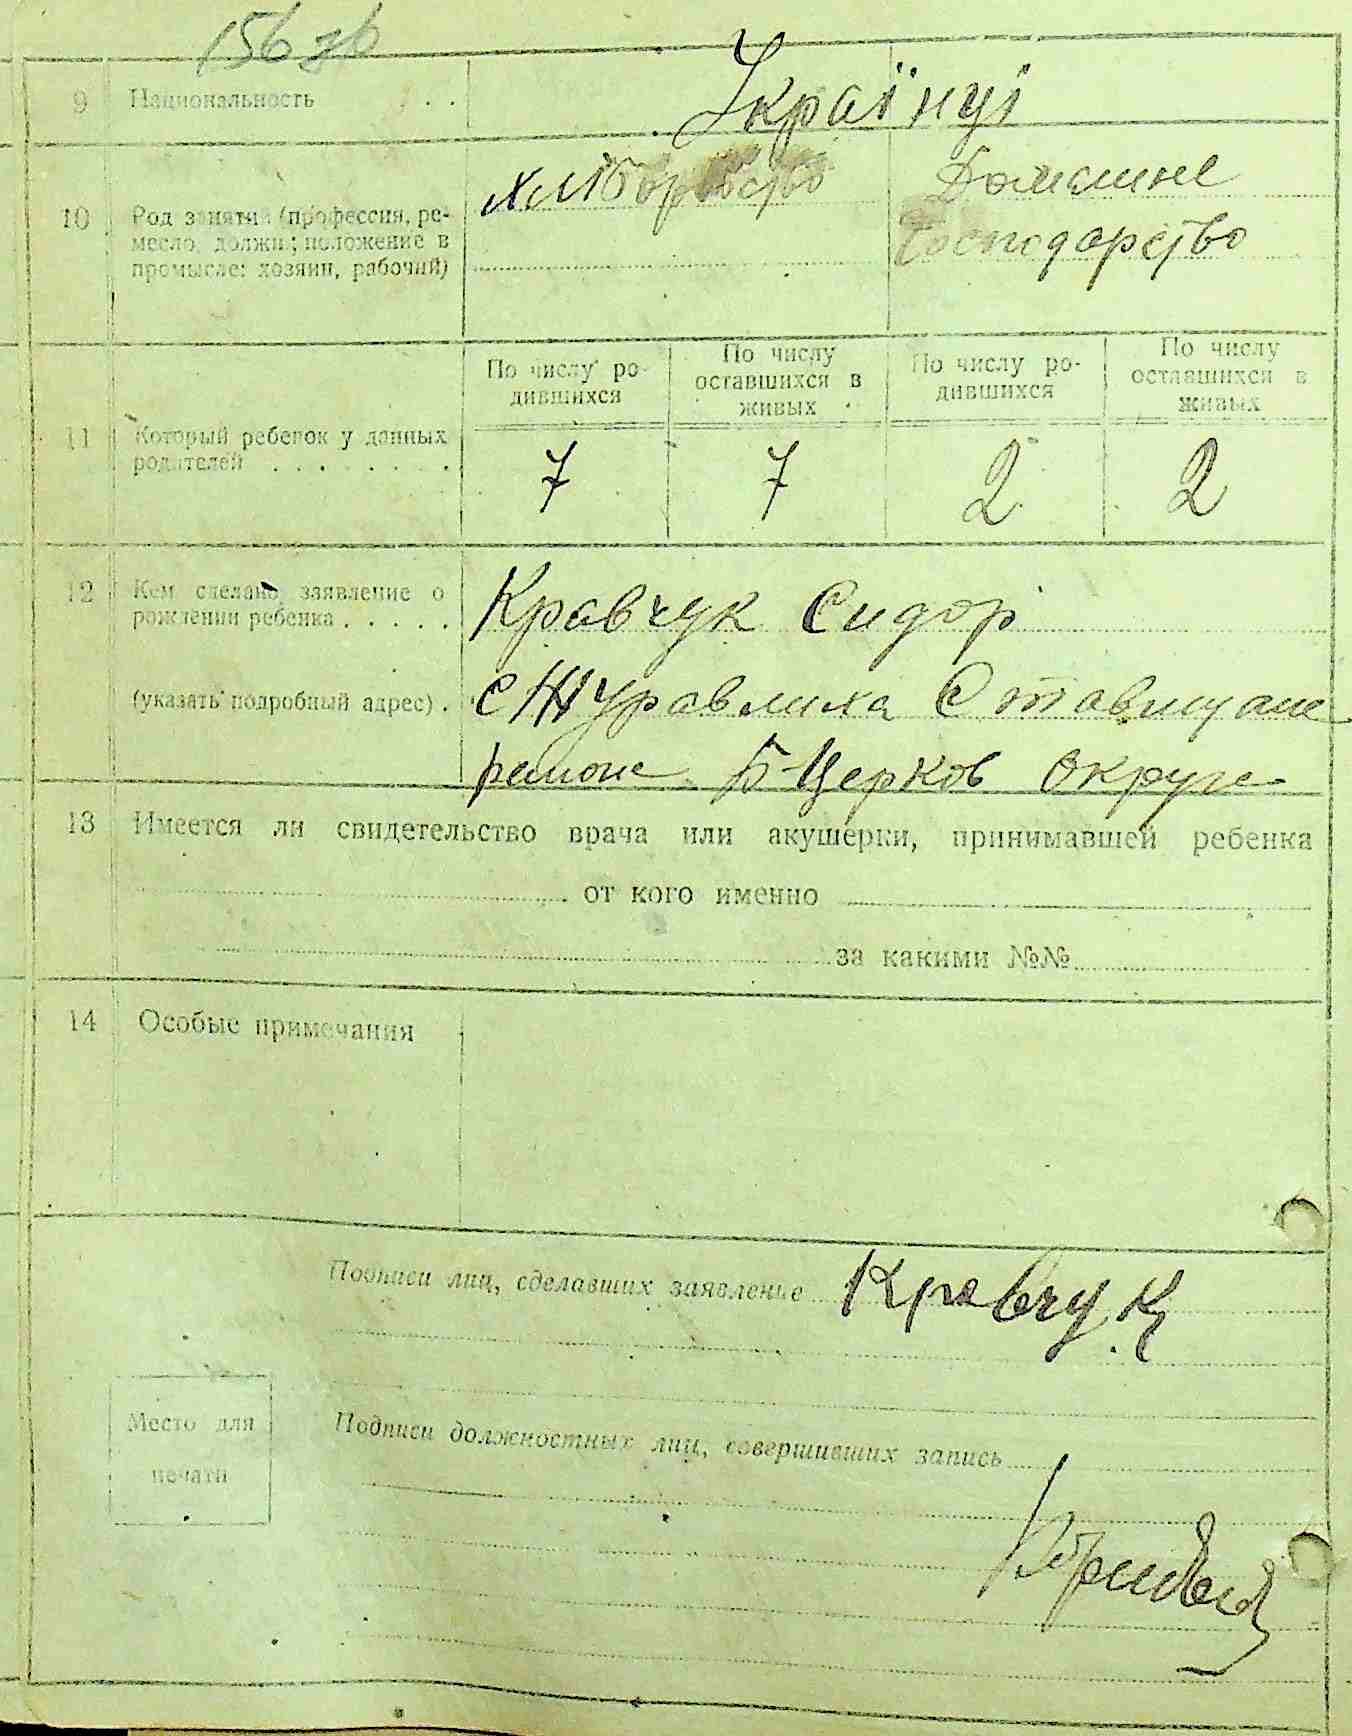 156 зв
9 Национальность . . Українці
10 Род занятий (профессия, ре-
месло, должн.; положение в
промысле: хозяин, рабочий)
хліборобство
Домашне
Господарство
По числу ро-
дившихся
По числу
оставшихся в
живых
По числу ро-
дившихся
По числу
оставшихся в
живых
11 Который ребенок у данных
родителей . . . . . . . .
7 7 2 2
12 Кем сделано заявление о
рождении ребенка . . . . .
Кравчук Сидор
(указать подробный адрес) . с Журавлиха Ставищан
района Б-Церков округи
13 Имеется ли свидетельство врача или акушерки, принимавшей ребенка
от кого именно
за какими №№
14 Особые примечания
Подписи лиц, сделавших заявление Кравчук
Место для
печати
Подписи должностных лиц, совершивших запись